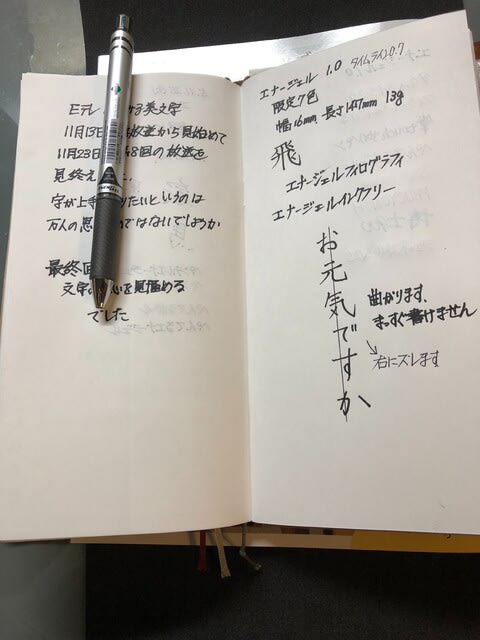 Eテレ ける美文字
11月13日 放送から見始めて
11月23日 8回の放送を
見終え
字が上手 りたいというのは
万人の思 ではないでしょうか
最終回
文字の 心を見極める
でした
エナージェル 1.0 タイムライン0.7
限定7色
幅16mm 長さ147mm 13g
飛
エナージェルフィログラフィ
エナージェルインクフリー
お元気ですか
曲がります、
まっすぐ書けません
右にズレます